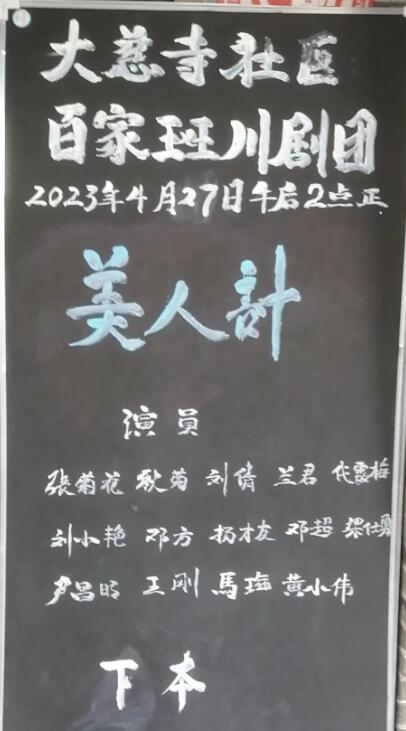 大慈寺社区
百家班川剧团
2023年4月27日午后2点正
美人計
演员
張菊花 秋菊 刘倩 兰君 代雪梅
刘小艳 邓方 扬才友 邓超 梁仕勇
尹昌明 王刚 馬 黄小伟
下本